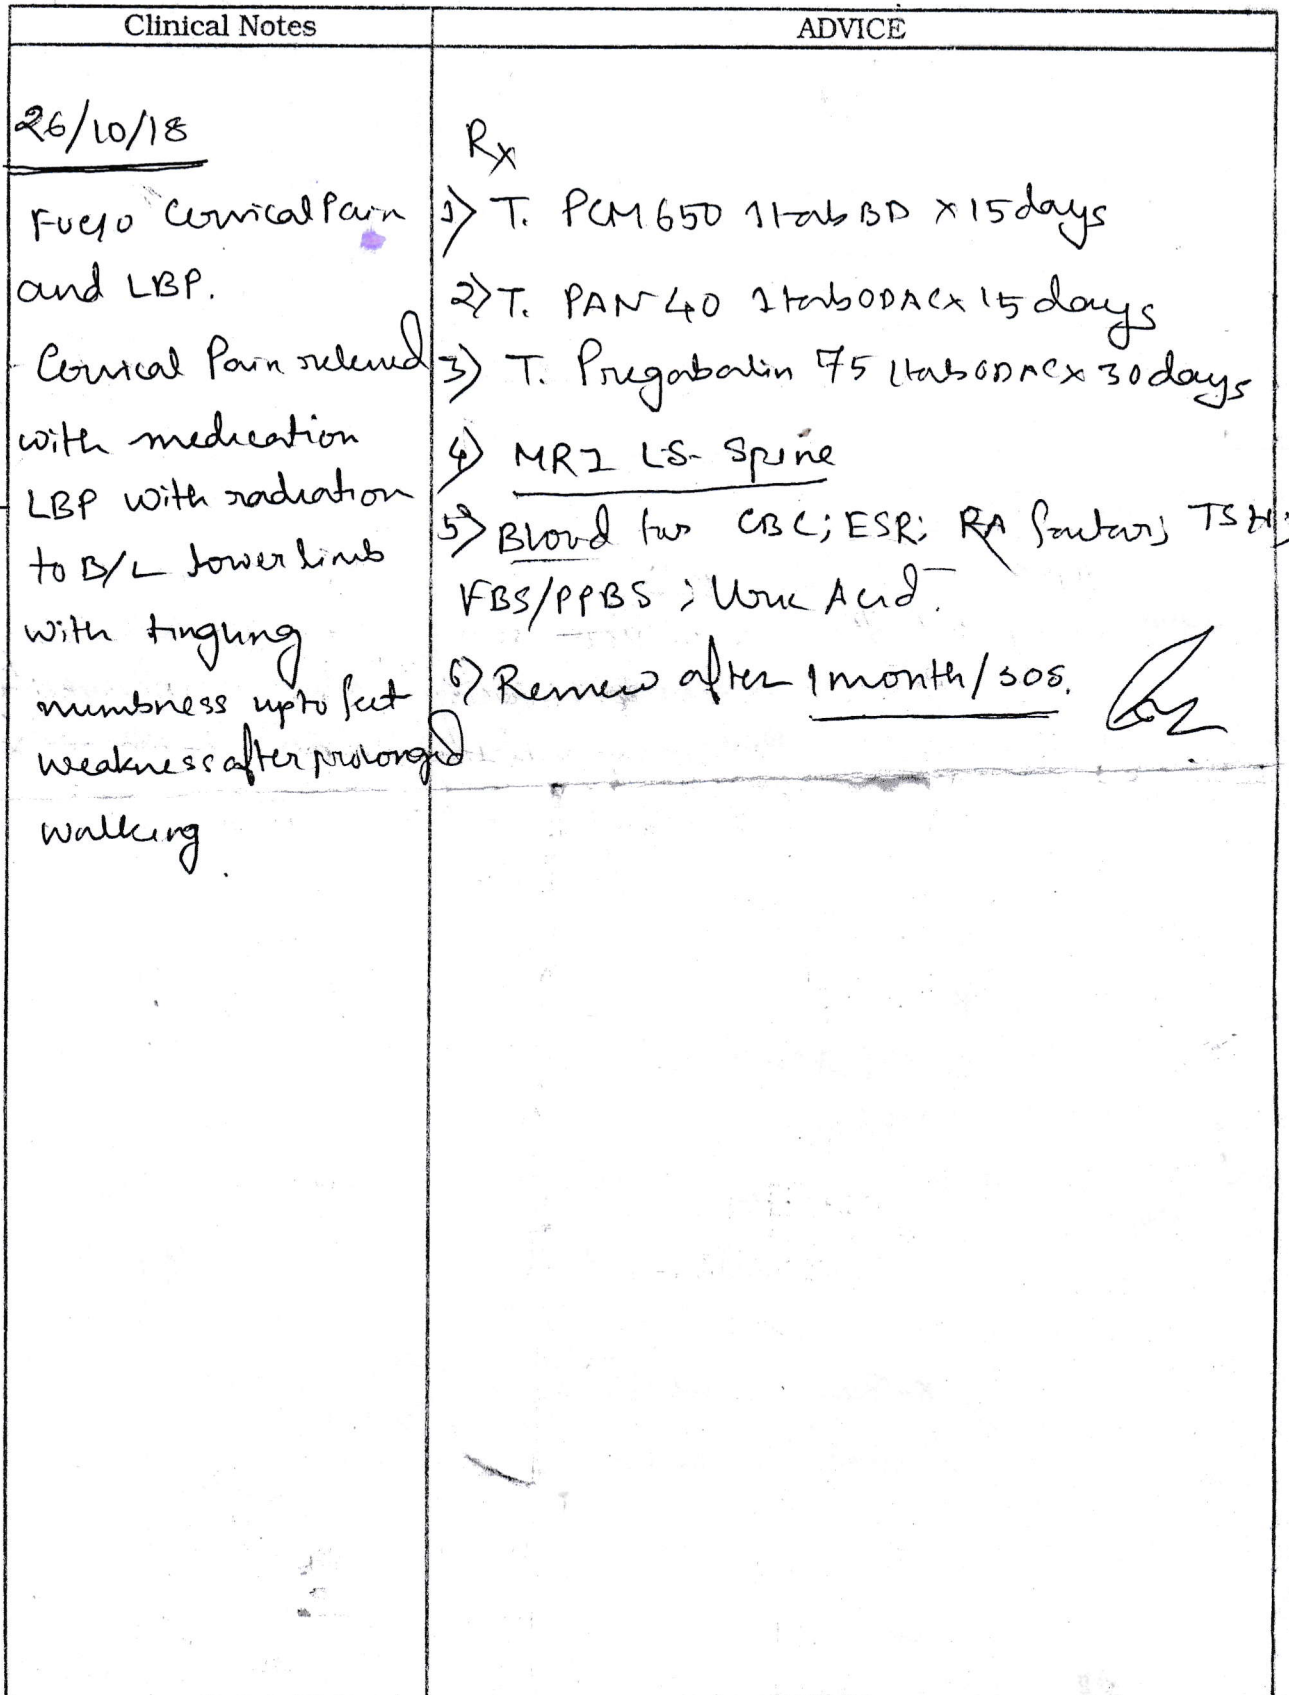 Clinical Notes
ADVICE
26/10/18
Fuc/o Cervical Pain
and LBP.
Cervical Pain relieved
with medication
LBP with radiation
to B/L lower limb
with tingling
numbness upto feet
weakness after prolonged
walking.
Rx
1) T. PCM 650 1 tab BD x 15 days
2) T. PAN 40 1 tab OD AC x 15 days
3) T. Pregabalin 75 1 tab OD AC x 30 days
4) MRI LS- Spine
5) Blood for CBC; ESR; RA factor; TSH;
FBS/PPBS; Uric Acid.
6) Review after 1 month/sos.